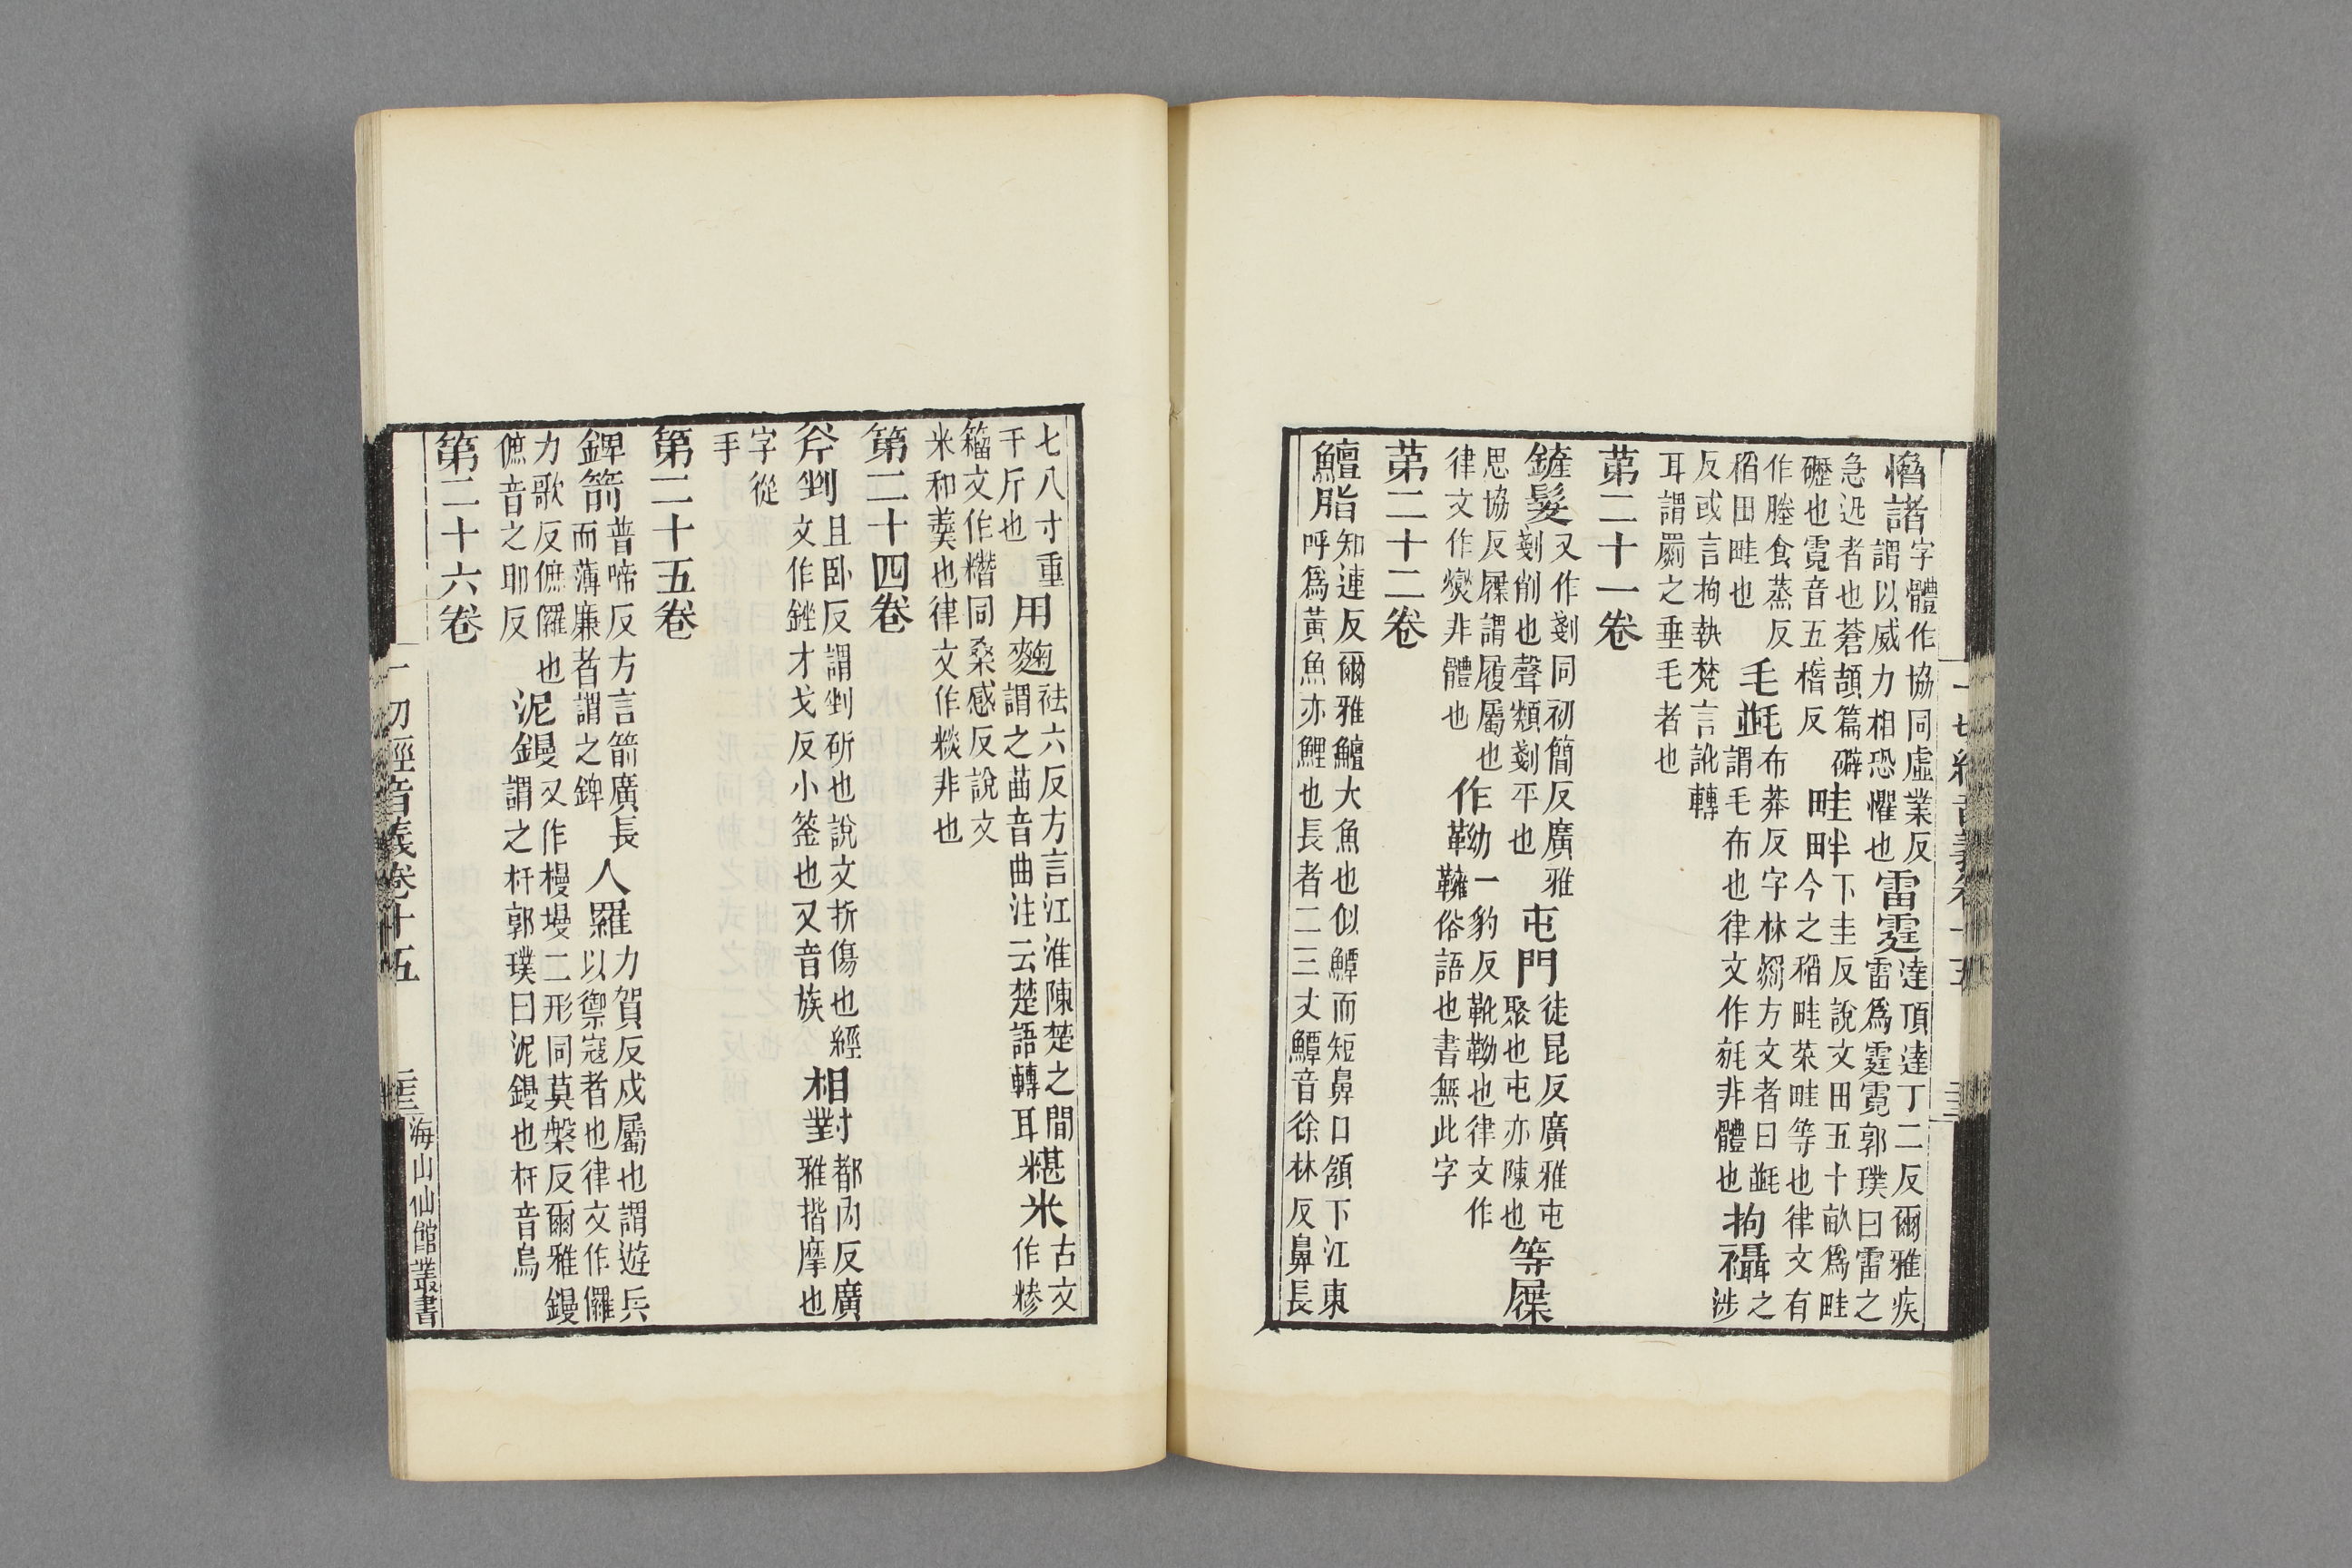 愶諸字體作協同虛業反謂以威力相恐懼也雷霆達頂達丁二反爾雅疾雷爲霆霓郭璞曰雷之
急迅者也蒼頡篇礔礰也霓音五楷反畦半下圭反說文田五十畝爲畦畦田今之稻畦菜畦等也律文有
作塍食蒸反稻田畦也毛㲪布莽反字林罽方文者曰㲪謂毛布也律文作毦非體也拘襵之涉
反或言拘執梵言訛轉耳謂罽之垂毛者也
苐二十一卷
鏟髮又作剗同初簡反廣雅剗削也聲類剗平也屯門徒昆反廣雅屯聚也屯亦陳也等屧
思協反屧謂履屬也律文作爕非體也作靿一豹反靴靿也律文作鞾俗語也書無此字
苐二十二卷
鱣脂知連反爾雅鱣大魚也似鱏而短鼻口頷下江東呼爲黃魚亦鯉也長者二三丈鱏音徐林反鼻長
一切經音義卷十五
七八寸重千斤也用麴袪六反方言江淮陳楚之間謂之䒼音曲注云楚語轉耳糂米古文作糝
籀文作糣同桑感反說文米和羹也律文作糉非也
第二十四卷
斧剉且臥反謂剉斫也說文折傷也經文作銼才戈反小釜也又音族相㨃都內反廣雅揩摩也
字從手
第二十五卷
錍箭普啼反方言箭廣長而薄廉者謂之錍人羅力賀反戍屬也謂遊兵以禦寇者也律文作儸
力歌反㒓儸也㒓音之耶反泥鏝又作槾墁二形同莫槃反爾雅鏝謂之杇郭璞曰泥鏝也杇音烏
第二十六卷
一切經音義卷十五
海山仙館叢書